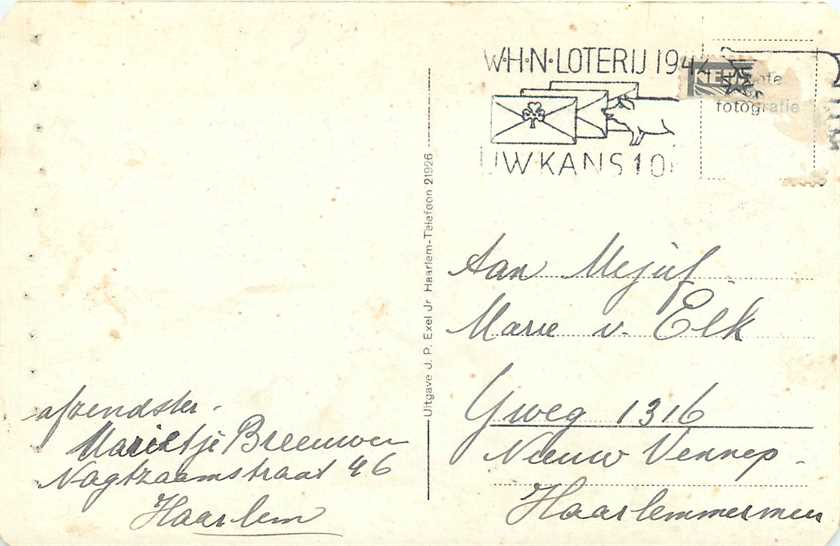 W·H·N·LOTERIJ 194
fotografie
UW·KANS 10
Uitgave J. P. Exel Jr Haarlem-Telefoon 21926
Aan Mejuf.
Marie v. Elk
Yweg 1316
Nieuw Vennep.
Haarlemmermeer
afzendster.
Marietje Breeuwer
Nagtzaamstraat 46
Haarlem